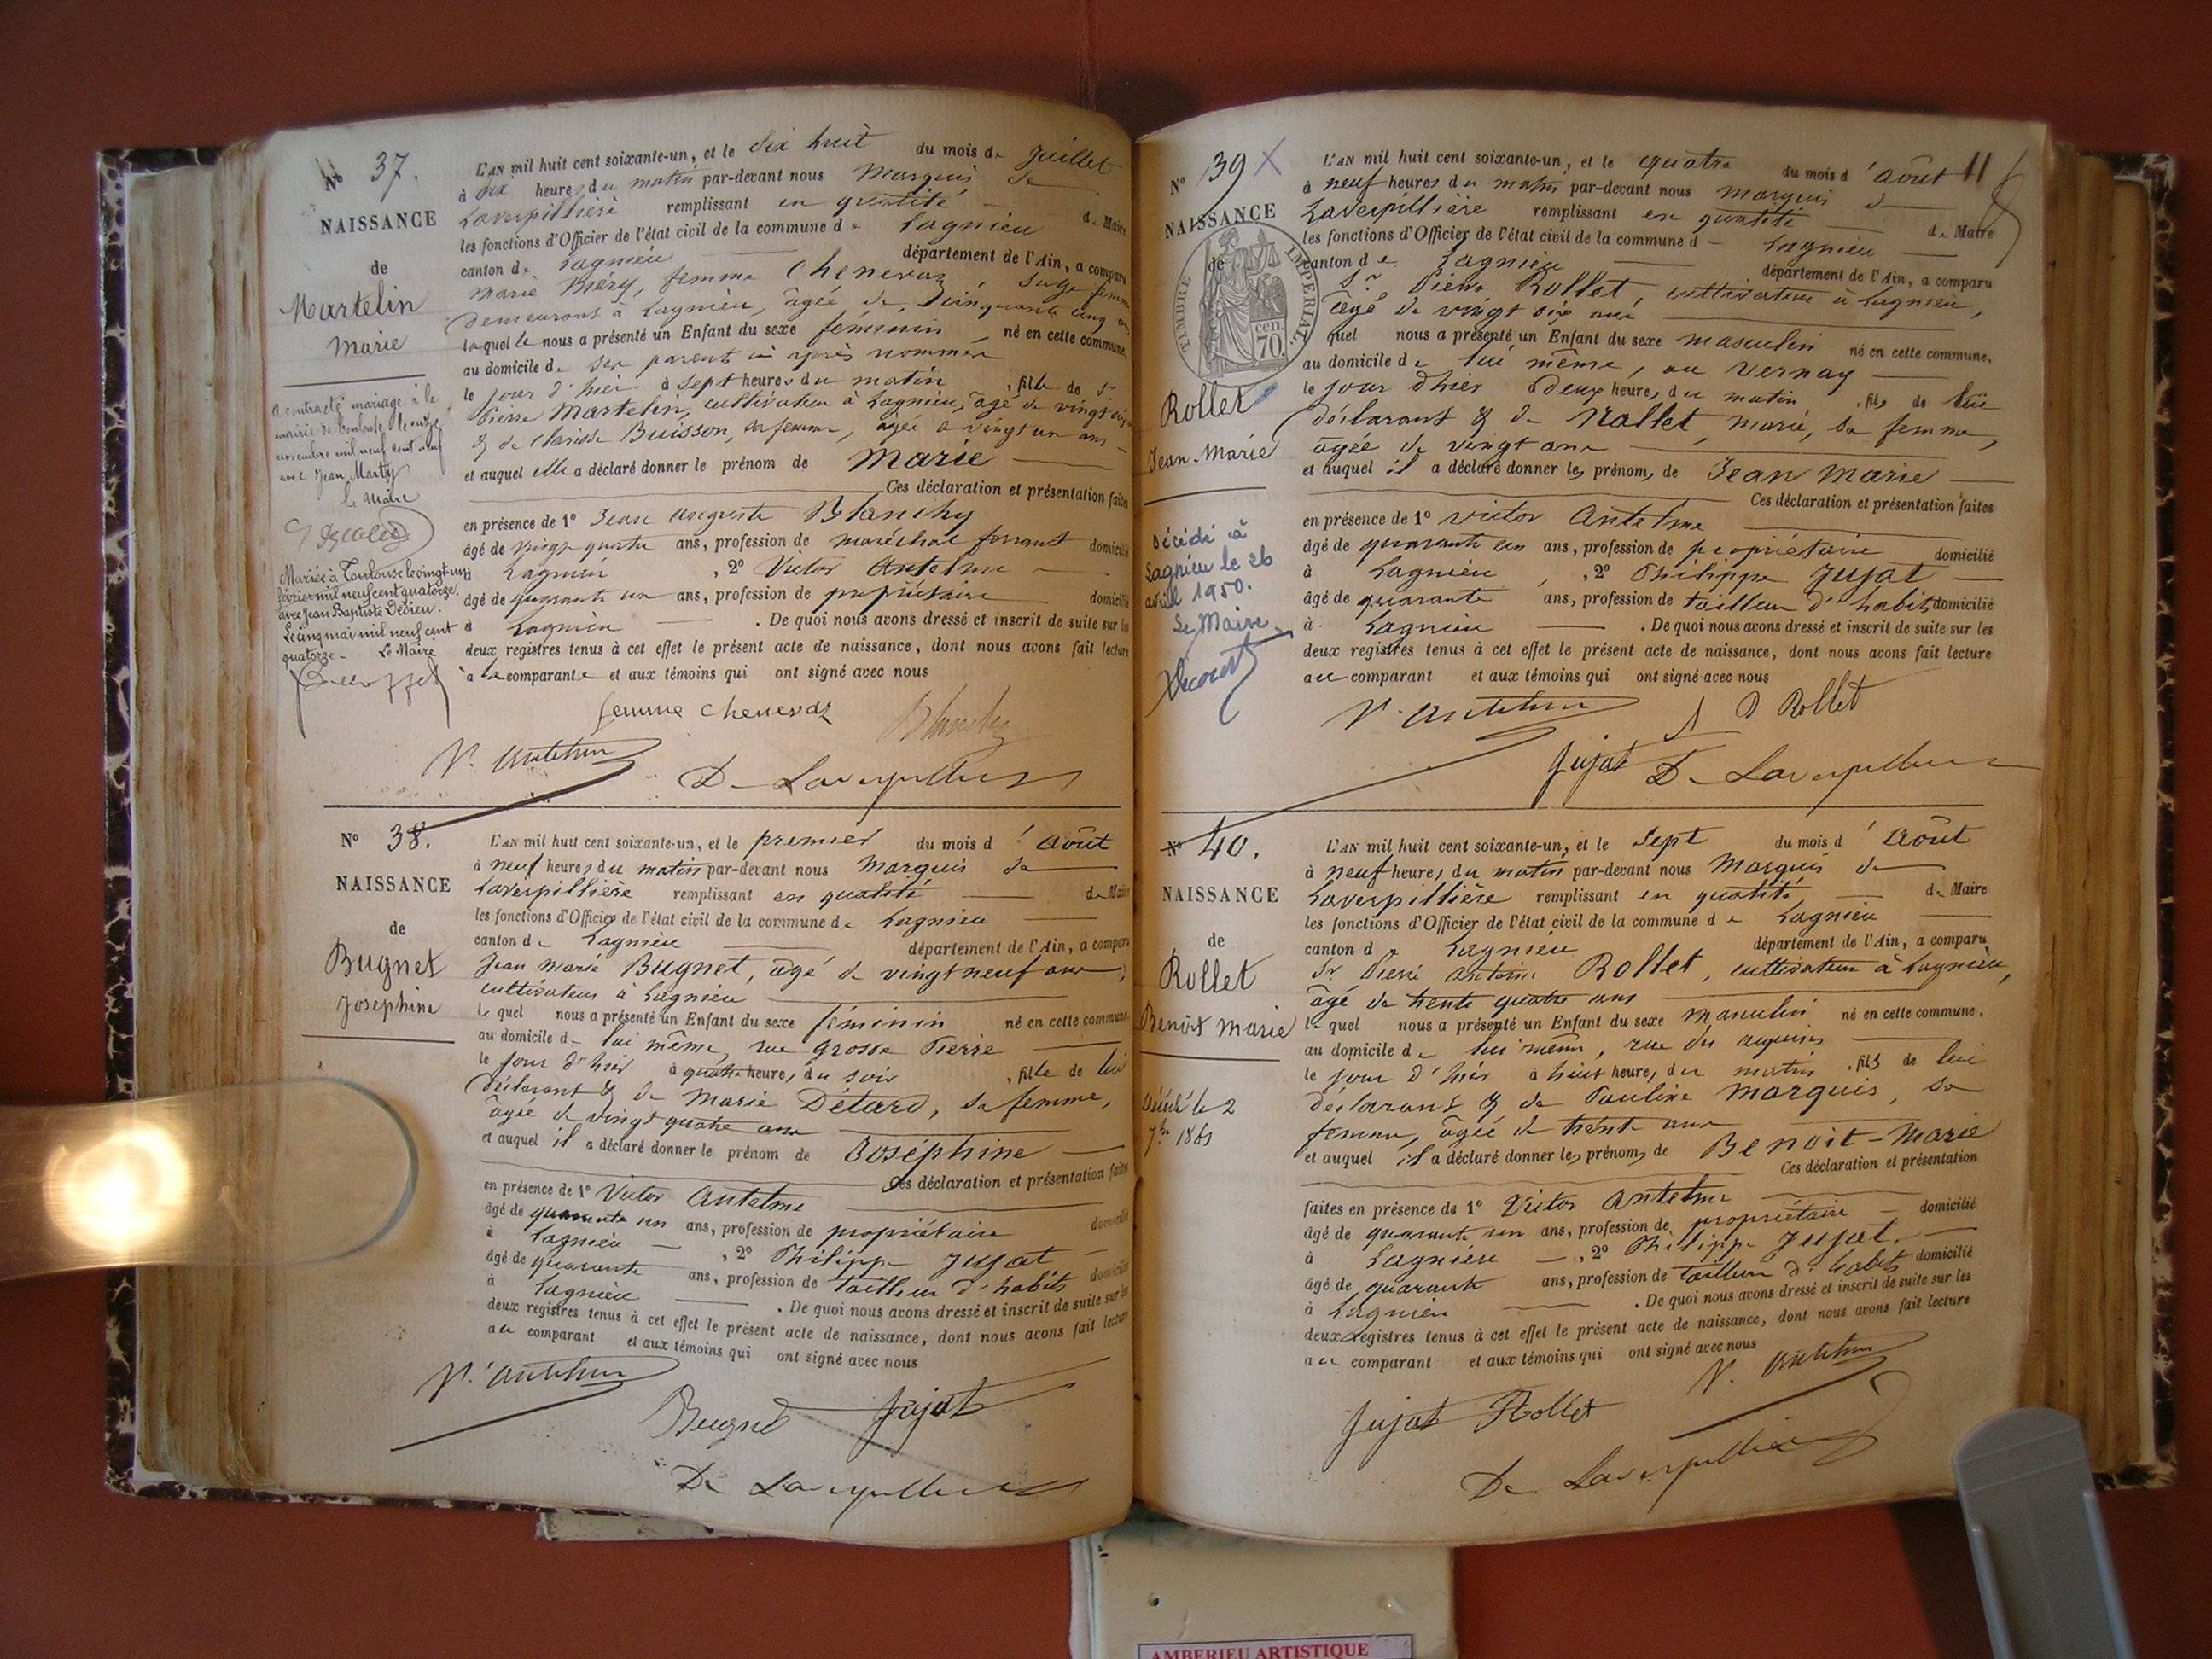 N° 37.
NAISSANCE
de
Martelin
Marie
A contracté mariage à la
mairie de Toulouse le onze
novembre mil neuf cent neuf
avec Jean Marty
le Maire
Mariée à Toulouse le vingt un
février mil neuf cent quatorze
avec Jean Baptiste Dédieu.
Le cinq mai mil neuf cent
quatorze - Le Maire
L'AN mil huit cent soixante-un, et le dix huit du mois de Juillet
à dix heures du matin par-devant nous Marquis de
Laverpillière remplissant en qualité de Maire
les fonctions d'Officier de l'état civil de la commune de Lagnieu
canton de Lagnieu département de l'Ain, a comparu
Marie Méry, femme Chenevaz, sage femme
demeurant à Lagnieu, âgée de cinquante cinq ans
laquelle nous a présenté un Enfant du sexe féminin, né en cette commune,
au domicile de ses parents ci après nommés
le jour d'hier à sept heures du matin, fille de Sr
Pierre Martelin, cultivateur à Lagnieu, âgé de vingt six
& de Clarisse Buisson, sa femme, âgée de vingt un ans
et auquel elle a déclaré donner le prénom de Marie
Ces déclaration et présentation faites
en présence de 1° Jean Auguste Blanchy
âgé de vingt quatre ans, profession de maréchal ferrant domicilié
à Lagnieu, 2° Victor Antelme
âgé de quarante un ans, profession de propriétaire domicilié
à Lagnieu. De quoi nous avons dressé et inscrit de suite sur les
deux registres tenus à cet effet le présent acte de naissance, dont nous avons fait lecture
à la comparante et aux témoins qui ont signé avec nous
femme chenevaz Blanchy
V. Antelme De Laverpillière
N° 38.
NAISSANCE
de
Bugnet
Joséphine
L'AN mil huit cent soixante-un, et le premier du mois d'Août
à neuf heures du matin par-devant nous Marquis de
Laverpillière remplissant en qualité de Maire
les fonctions d'Officier de l'état civil de la commune de Lagnieu
canton de Lagnieu département de l'Ain, a comparu
Jean Marie Bugnet, âgé de vingt neuf ans,
cultivateur à Lagnieu
lequel nous a présenté un Enfant du sexe féminin né en cette commune,
au domicile de lui même, rue Grosse Pierre
le jour d'hier à quatre heures du soir, fille de lui
déclarant & de Marie Détard, sa femme,
âgée de vingt quatre ans
et auquel il a déclaré donner le prénom de Joséphine
Ces déclaration et présentation faites
en présence de 1° Victor Antelme
âgé de quarante un ans, profession de propriétaire domicilié
à Lagnieu, 2° Philippe Jujat
âgé de quarante ans, profession de tailleur d'habits domicilié
à Lagnieu. De quoi nous avons dressé et inscrit de suite sur les
deux registres tenus à cet effet le présent acte de naissance, dont nous avons fait lecture
au comparant et aux témoins qui ont signé avec nous
V. Antelme
Bugnet Jujat
De Laverpillière
11
N° 39 X
NAISSANCE
de
TIMBRE IMPERIAL
70 cen.
Rollet
Jean-Marie
Décédé à
Lagnieu le 26
avril 1950.
Le Maire
L'AN mil huit cent soixante-un, et le quatre du mois d'Août
à neuf heures du matin par-devant nous Marquis de
Laverpillière remplissant en qualité de Maire
les fonctions d'Officier de l'état civil de la commune de Lagnieu
canton de Lagnieu département de l'Ain, a comparu
Sr Pierre Rollet, cultivateur à Lagnieu,
âgé de vingt six ans
quel nous a présenté un Enfant du sexe masculin né en cette commune,
au domicile de lui même, au Vernay
le jour d'hier à deux heures du matin, fils de lui
déclarant & de Rollet, Marie, sa femme,
âgée de vingt ans
et auquel il a déclaré donner les prénoms de Jean Marie
Ces déclaration et présentation faites
en présence de 1° Victor Antelme
âgé de quarante un ans, profession de propriétaire domicilié
à Lagnieu, 2° Philippe Jujat
âgé de quarante ans, profession de tailleur d'habits domicilié
à Lagnieu. De quoi nous avons dressé et inscrit de suite sur les
deux registres tenus à cet effet le présent acte de naissance, dont nous avons fait lecture
au comparant et aux témoins qui ont signé avec nous
V. Antelme P Rollet
Jujat De Laverpillière
N° 40.
NAISSANCE
de
Rollet
Benoit Marie
Décédé le 2
7bre 1861
L'AN mil huit cent soixante-un, et le Sept du mois d'Août
à neuf heures du matin par-devant nous Marquis de
Laverpillière remplissant en qualité de Maire
les fonctions d'Officier de l'état civil de la commune de Lagnieu
canton de Lagnieu département de l'Ain, a comparu
Sr Pierre Antoine Rollet, cultivateur à Lagnieu,
âgé de trente quatre ans
lequel nous a présenté un Enfant du sexe masculin né en cette commune,
au domicile de lui même, rue des
le jour d'hier à huit heures du matin, fils de lui
déclarant & de Pauline Marquis, sa
femme, âgée de trente ans
et auquel il a déclaré donner les prénoms de Benoit-Marie
Ces déclaration et présentation
faites en présence de 1° Victor Antelme
âgé de quarante un ans, profession de propriétaire domicilié
à Lagnieu, 2° Philippe Jujat
âgé de quarante ans, profession de tailleur d'habits domicilié
à Lagnieu. De quoi nous avons dressé et inscrit de suite sur les
deux registres tenus à cet effet le présent acte de naissance, dont nous avons fait lecture
au comparant et aux témoins qui ont signé avec nous
V. Antelme
Jujat Rollet
De Laverpillière
AMBERIEU ARTISTIQUE